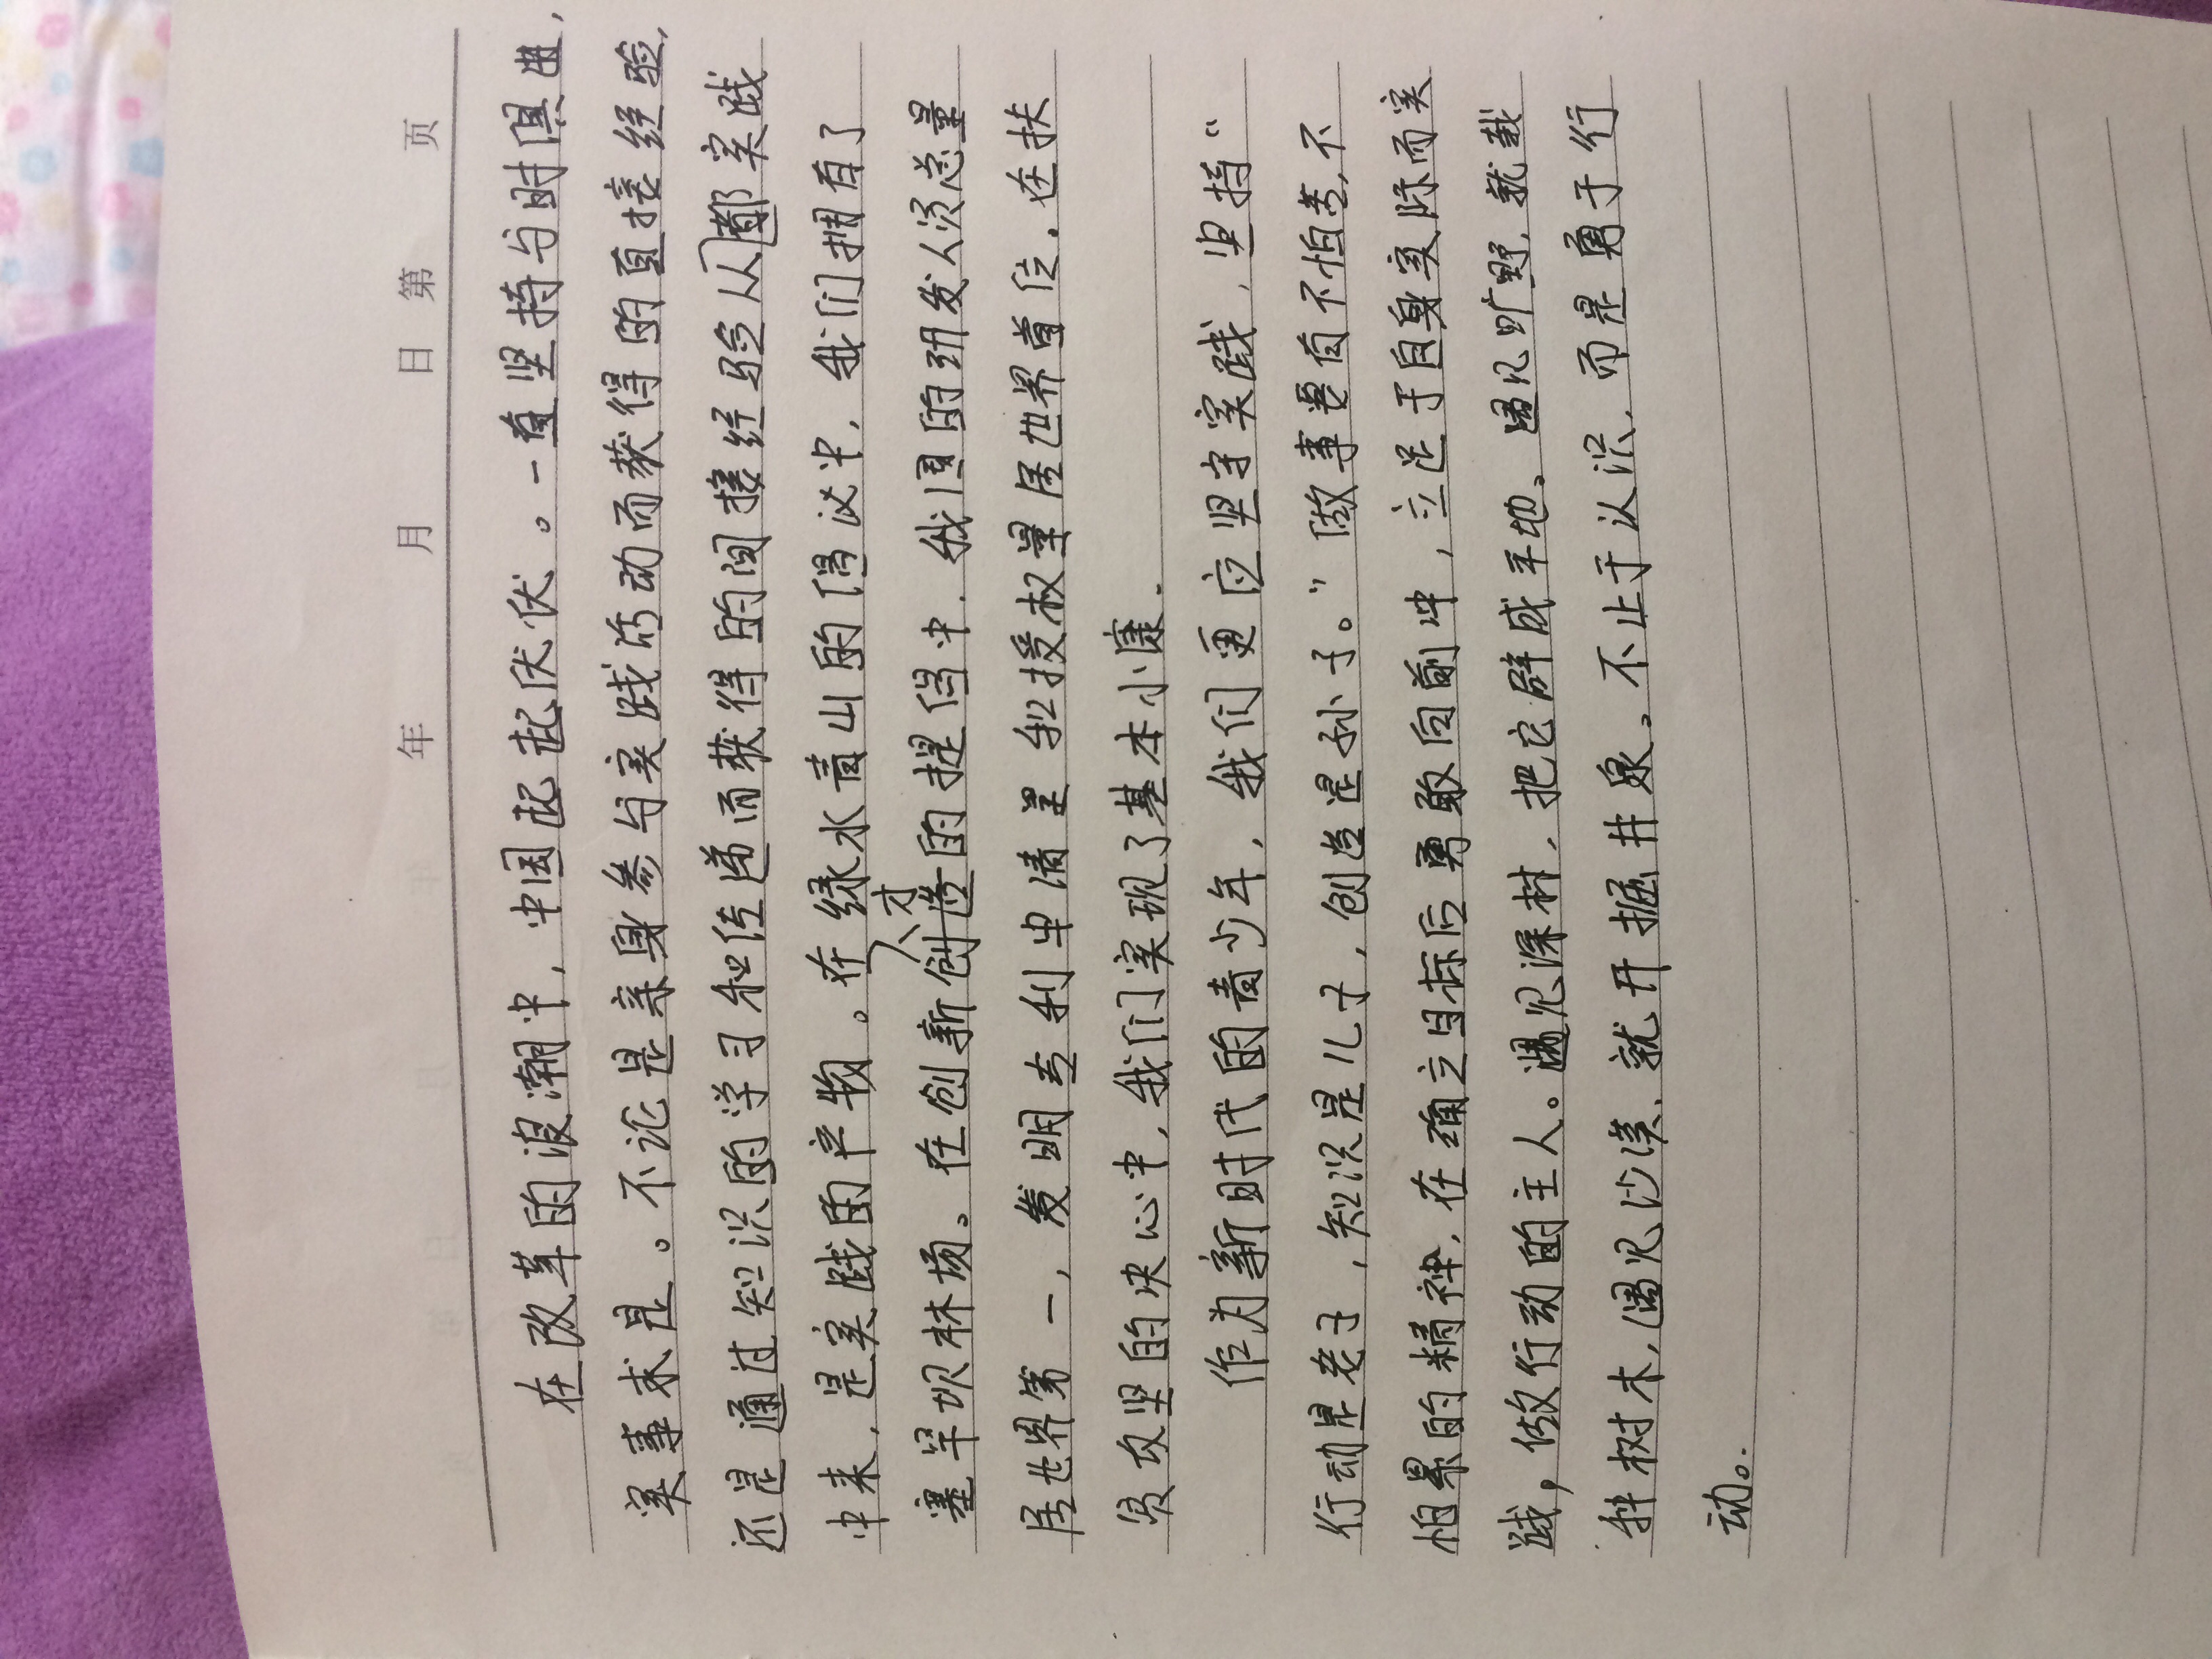 年 月 日 第 页
在改革的浪潮中,中国起起伏伏。一直坚持与时俱进,
实事求是。不论是亲身参与实践活动而获得的直接经验,
还是通过知识的学习和传递而获得的间接经验从都实践
中来,是实践的产物。在绿水青山的倡议中,我们拥有了
塞罕坝林场。在创新创造人才的提倡中,我国的研发人员总量
居世界第一,发明专利申请量和授权量居世界首位,在扶
贫攻坚的决心中,我们实现了基本小康.
作为新时代的青少年,我们更应坚守实践,坚持“
行动是老子,知识是儿子,创造是孙子。”做事要有不怕苦,不
怕累的精神,在确立目标后勇敢向前冲,立足于自身实际而实
践,做行动的主人。遇见深林,把它辟成平地。遇见旷野,就栽
种树木,遇见沙漠,就开掘井泉。不止于认识,而是勇于行
动。